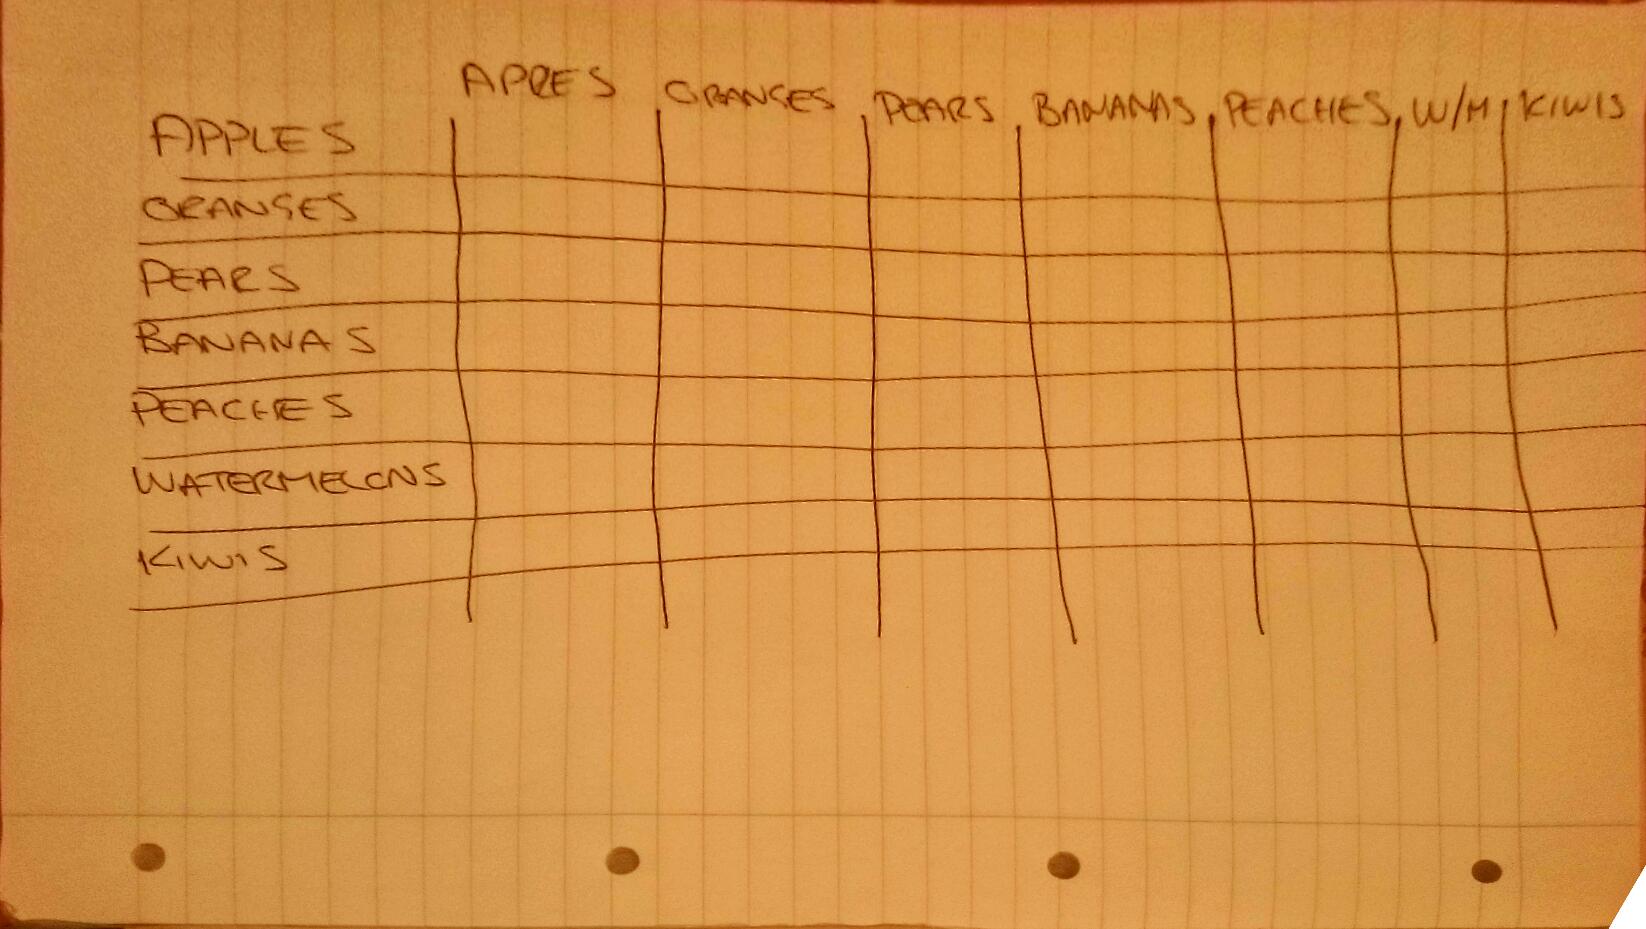 APPLES ORANGES PEARS BANANAS PEACHES W/M KIWIS
APPLES
ORANGES
PEARS
BANANAS
PEACHES
WATERMELONS
KIWIS